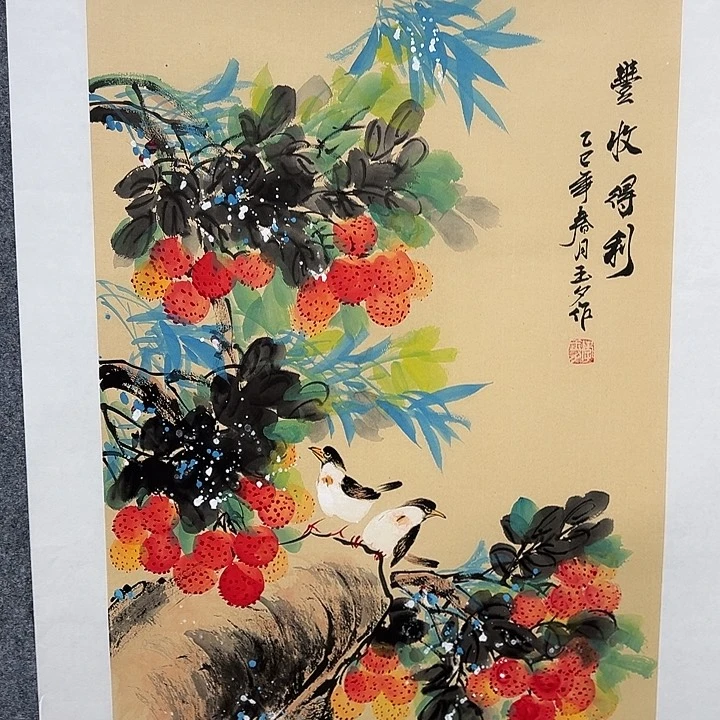 豐收得利
乙巳年春月玉夕作